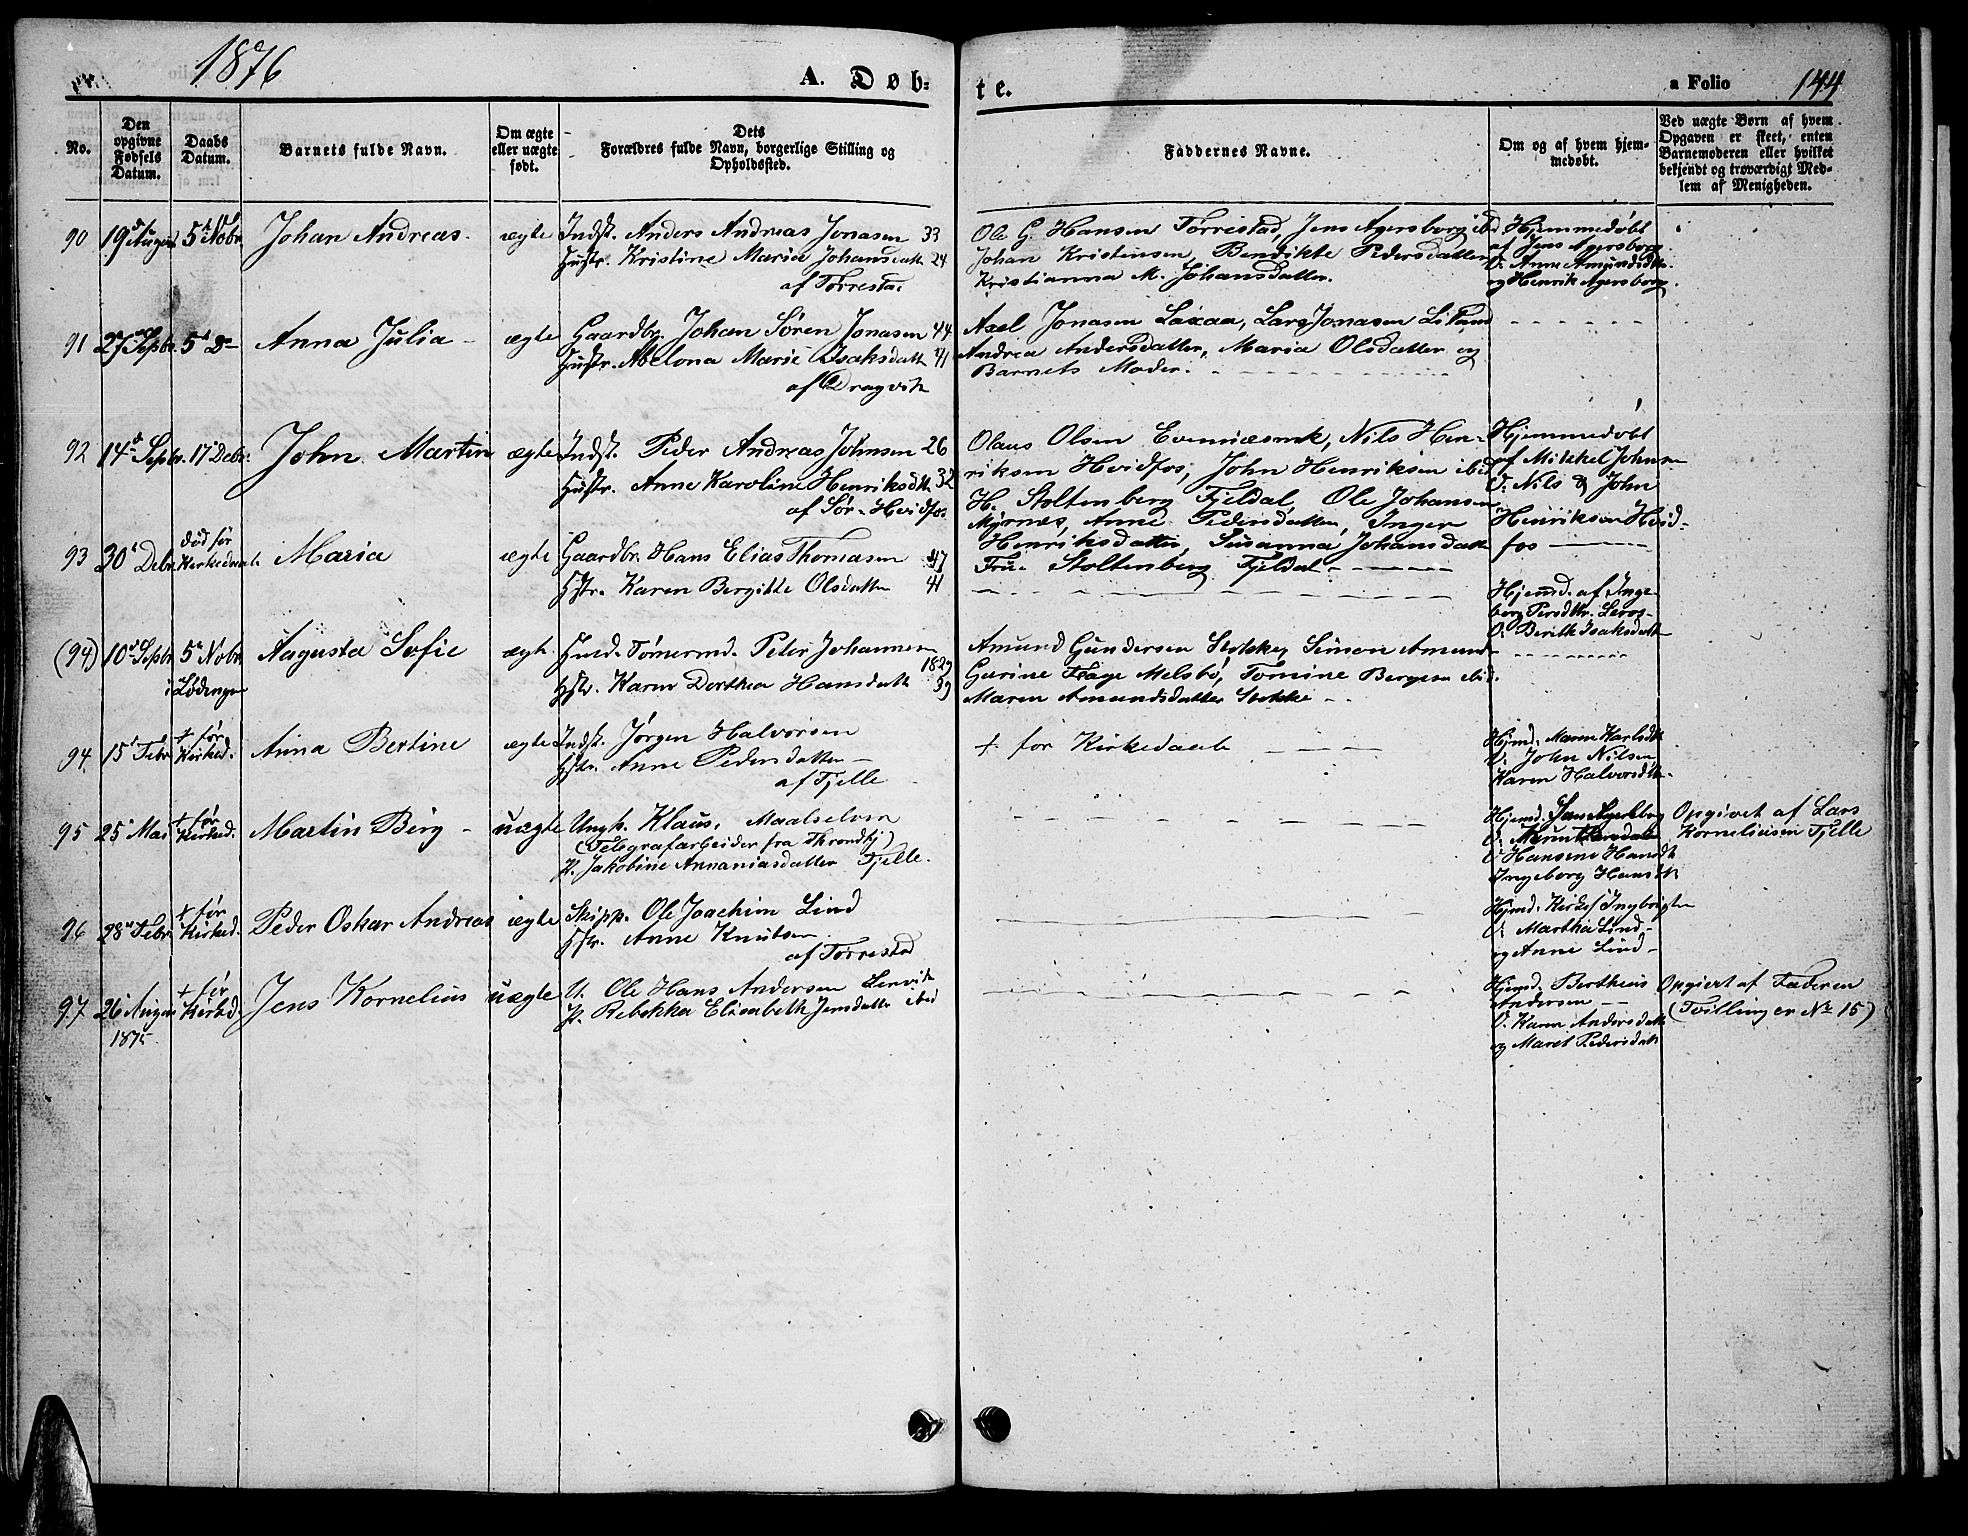 1876
A. Døb-
te.
a Folio 144
No.
Den opgivne Fødsels Datum.
Daabs Datum.
Barnets fulde Navn.
Om ægte eller uægte født.
Dets Forældres fulde Navn, borgerlige Stilling og Opholdssted.
Faddernes Navne.
Om og af hvem hjemmedøbt.
Ved uægte Børn af hvem Opgaven er skeet, enten Barnemoderen eller hvilket bekjendt og troværdigt Medlem af Menigheden.
90 19d August 5t Nobr. Johan Andreas. ægte Indst. Anders Andreas Jonasen 33
Hustr. Kristine Maria Johansdatt 24
af Torresta.
Ole G. Hansen Torrestad, Jens Agersborg ibd
Johan Kristensen, Bendikte Pedersdatter
Kristianna M. Johansdatter.
Hjemmedøbt
af Jens Agersborg
V. Anne Amundsdtr.
og Henrik Agersborg
91 27 Septbr. 5t Do Anna Julia ægte Gaardbr. Johan Søren Jonasen 44
Hustr. Abelona Marie Isaksdatt 41
af Dragvik
Axel Jonasen Laxaa, Lars Jonasen
Andrea Andersdatter, Maria Olsdatter og
Barnets Moder.
92 14d Septbr. 17 Debr. John Martin ægte Indst. Peder Andreas Johnsen 26
Hustr. Anne Karoline Henriksdtr. 32
af Sør-Hvidfos
Olaus Olsen Evenæsmk, Nils Hen-
riksen Hvidfos, John Henriksen ibid
H. Stoltenberg Fjeldal, Ole Johansen
Myrnæs, Anne Pedersdatter, Inger
Henriksdatter, Susanna Johansdatt
Frue Stoltenberg Fjeldal
Hjemmedøbt
af Mikkel Johnsen
V. Nils & John
Henriksen Hvid-
fos
93 30t Debr. død før Kirkedaab Maria ægte Gaardbr. Hans Elias Thomasen 47
Hstr. Karen Bergitte Olsdatter 41
Hjemd. af Inge-
borg Persdtr.
V. Berith Isaksdatt
(94) 10d Septbr 5t Nobr. i Lødingen Augusta Sofie ægte Husd. Tømermd. Peter Johannesen 1829
Hstr. Karen Dorthea Hansdatt 39
Amund Gundersen Stokke, Simon Amund
Gurine Fage Melsbø, Tomine Bergesen ibid.
Maren Amundsdatter Stokke
94. 15d Febr. † før Kirked. Anna Bertine ægte Indst. Jørgen Halvorsen
Hstr. Anne Pedersdatter
af Fjelle
† for Kirkedaab
Hjemd. Maren Karlsdtr.
V. John Nilsen
Karen Halvorsdtr.
95 25 Mai † før Kirked. Martin Berg uægte Ungk. Klaus, Maalselven
(Telegrafarbeider fra Throndhj)
P. Jakobine Annaniasdatter Fjelle.
V. Hansine Hansdt
Ingeborg Hansdt
Opgivet af Lars
Korneliusen Fjelle
96 28 Febr. † før Kirked. Peder Oskar Andreas ægte Skipp. Ole Joachim Lind
Hstr. Anne Knutsen
af Torrestad
Hjemd. Kirks. Ingbrigtsen
V. Martha Lind
og Anne Lind
97 26 August 1875 † før Kirked. Jens Kornelius uægte U. Ole Hans Andersen Lenvik
P. Rebekka Elisabeth Jensdatter ibid
Hjemd. Bertheus
Andersen
V. Karen Andersdatt
og Maret Pedersdatt
Opgivet af Faderen
(Tvilling er No 15)